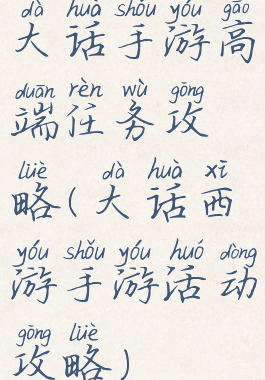 dà huà shǒu yóu gāo
大话手游高
duān rèn wù gōng
端任务攻
lüè dà huà xī
略(大话西
yóu shǒu yóu huó dòng
游手游活动
gōng lüè
攻略)